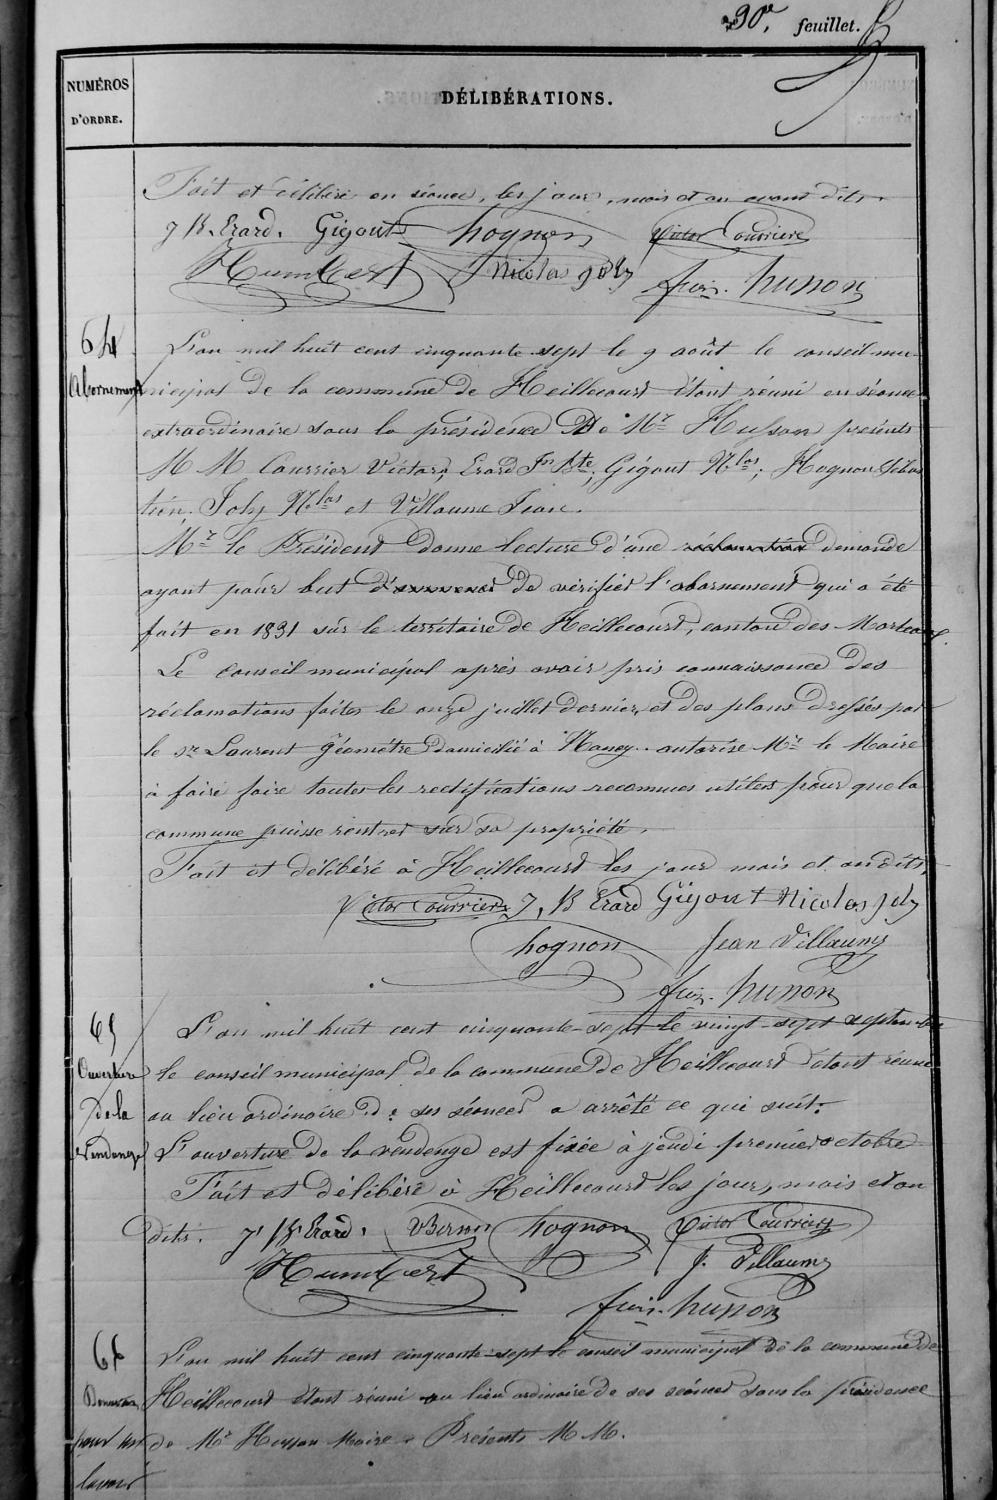 30e. feuillet.
NUMÉROS
D'ORDRE.
DÉLIBÉRATIONS.
Fait et délibéré en séance, les jour, mois et an avant dits.
J B. Erard. Gigout hognon Victor Courrier
Humbert Nicolas Joly husson
64
Abornement
L'an mil huit cent cinquante sept le 9 août le conseil mu-
nicipal de la commune de Heillecourt étant réuni en séance
extraordinaire sous la présidence De Mr Husson présents
M M Courrier Victor, Erard Jn Bte, Gigout Nlas, Hognon Sébas
tien, Joly Nlas et Villaume Jean.
Mr le Président donne lecture d'une réclamation demande
ayant pour but de vérifier l'abornement qui a été
fait en 1831 sur le territoire de Heillecourt, canton des
Le conseil municipal après avoir pris connaissance des
réclamations faites le onze juillet dernier, et des plans dressés par
le sr Laurent Géométre Domicilié à Nancy. autorise Mr le Maire
à faire faire toutes les rectifications reconnues utiles pour que la
commune puisse rentrer sur sa propriété.
Fait et délibéré à Heillecourt les jour mois et an dits,
Victor Courrier J, B Erard Gigout Nicolas Joly
hognon Jean Villaume
husson
65
Ouverture
de la
Vendange
L'an mil huit cent cinquante-sept le vingt-sept septembre
le conseil municipal de la commune de Heillecourt étant réuni
au lieu ordinaire de ses séances a arrêté ce qui suit:
L'ouverture de la vendenge est fixée à jeudi premier octobre
Fait et délibéré à Heillecourt les jour, mois et an
dits. J B Erard. hognon Victor Courrier
Humbert J. Villaume
husson
66
pour un
lavoir
L'an mil huit cent cinquante-sept le conseil municipal de la commune de
Heillecourt étant réuni au lieu ordinaire de ses séances sous la présidence
de Mr Husson Maire. Présents M M.